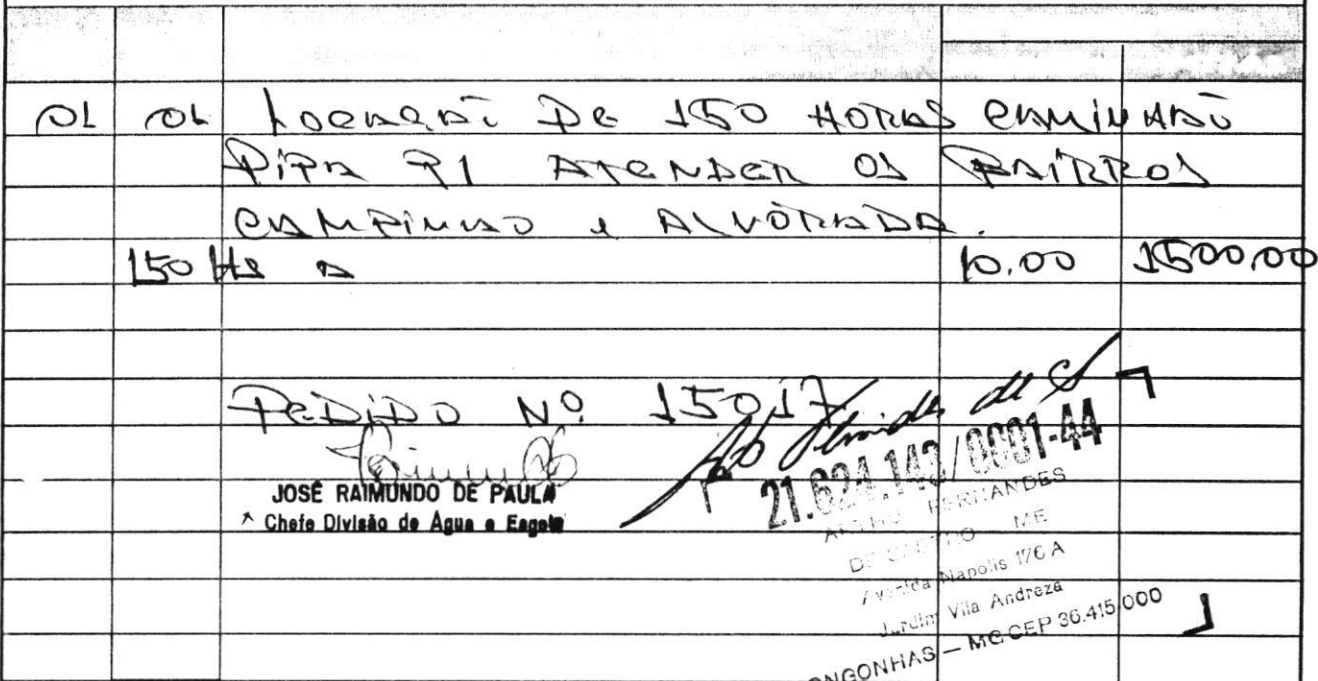 01 01 LOCAÇÃO DE 150 HORAS CAMINHÃO
PIPA P/ ATENDER OS BAIRROS
CAMPINHO e ALVORADA.
150 Hs a 10.00 1500,00
PEDIDO Nº 15017
JOSÉ RAIMUNDO DE PAULA
Chefe Divisão de Agua e Esgoto
21.624.143/0001-44
FERNANDES
ME
Avenida Napolis 176 A
Jardim Vila Andreza
ONGONHAS — MG CEP 36.415.000